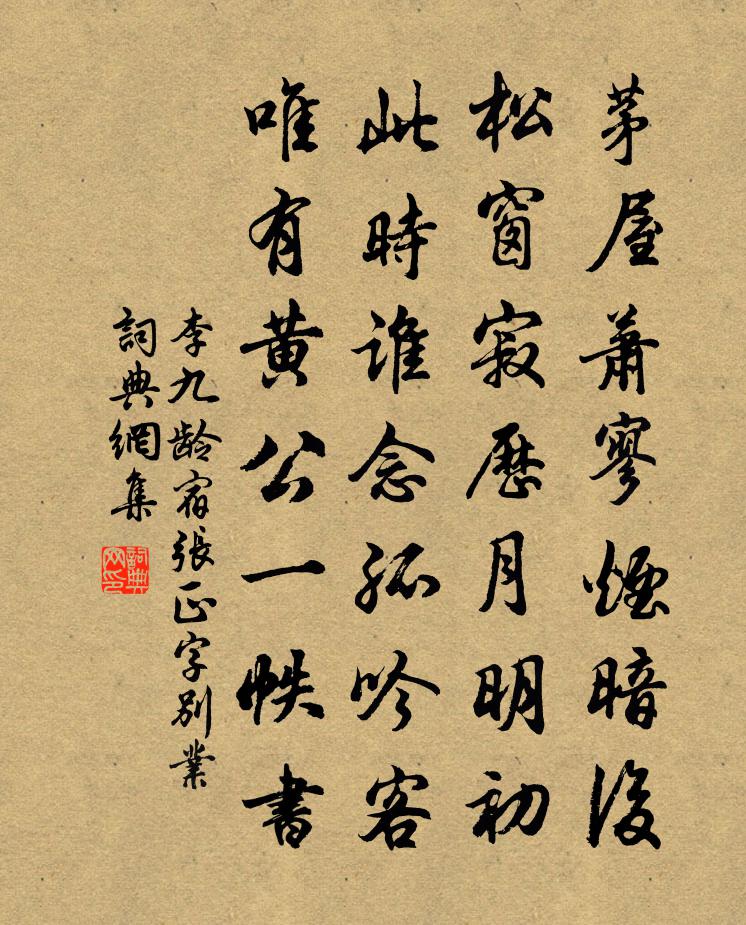 茅屋蕭寥煙暗後
松窗寂歷月明初
此時誰念孤吟客
唯有黃公一帙書
李九齡宿張正字別業
詞典網集
詞典网印